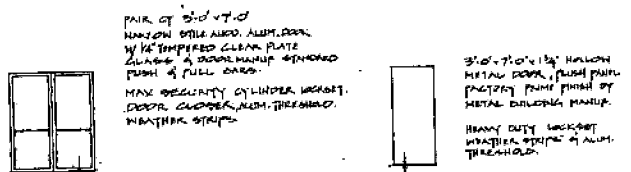 PAIR OF 3'-0" x 7'-0"
NARROW STILE ANOD. ALUM. DOOR
W/ 1/4" TEMPERED CLEAR PLATE
GLASS & DOOR MANUF STANDARD
PUSH & PULL BARS.
MAX SECURITY CYLINDER LOCKSET.
DOOR CLOSER, ALUM. THRESHOLD.
WEATHER STRIPS
3'-0" x 7'-0" x 1 3/4" HOLLOW
METAL DOOR, FLUSH PANEL
FACTORY PRIME FINISH BY
METAL BUILDING MANUF.
HEAVY DUTY LOCKSET
WEATHER STRIPS & ALUM.
THRESHOLD.